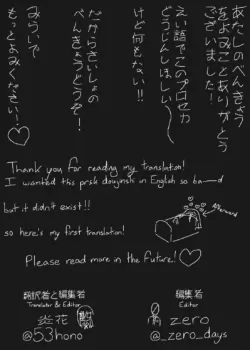 あたしのべんきょう
をよみことありがとう
ございました!
えい語でこのプロセカ
どうじんしほしい〜
けど何もない!!
だからさいしょの
べんきょうどうぞ!
みらいで
もっとよみください!♡
Thank you for reading my translation!
I wanted this prsk doujinshi in English so ba—d
but it didn't exist!!
so here's my first translation!
Please read more in the future!♡
翻訳者と編集者
Translator & Editor
炎花
@53hono
編集者
Editor
zero
@_zero_days